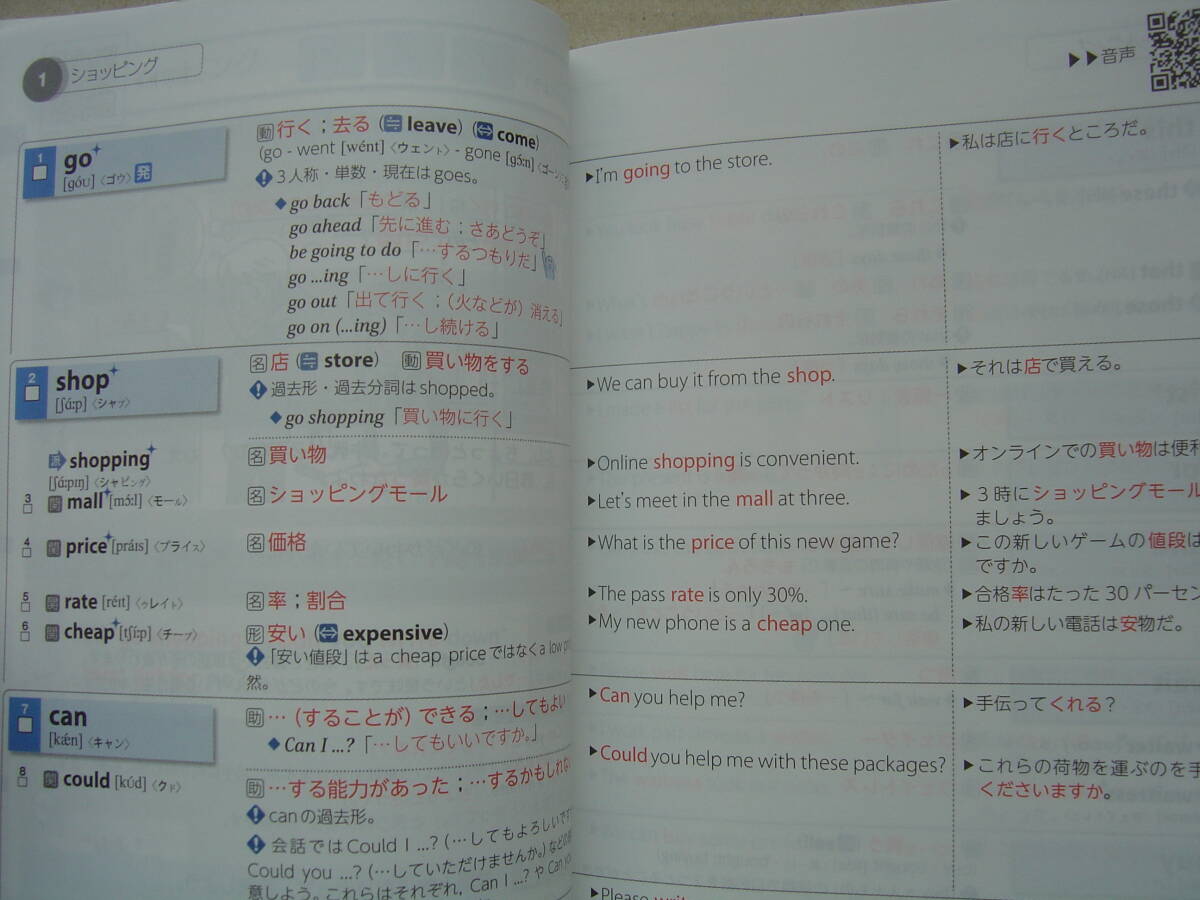 1 ショッピング
1 go [góu]〈ゴウ〉発
動 行く；去る（ leave）（ come）
(go - went [wént]〈ウェント〉- gone [gɔ́ːn]
3人称・単数・現在は goes。
go back「もどる」
go ahead「先に進む；さあどうぞ」
be going to do「…するつもりだ」
go ...ing「…しに行く」
go out「出て行く；（火などが）消える」
go on (...ing)「…し続ける」
2 shop [ʃɑ́ːp]〈シャプ〉
名 店（ store） 動 買い物をする
過去形・過去分詞は shopped。
go shopping「買い物に行く」
派 shopping [ʃɑ́ːpɪŋ]〈シャピング〉
名 買い物
3 関 mall [mɔ́ːl]〈モール〉
名 ショッピングモール
4 関 price [práɪs]〈プライス〉
名 価格
5 関 rate [réɪt]〈ゥレイト〉
名 率；割合
6 関 cheap [tʃíːp]〈チープ〉
形 安い（ expensive）
「安い値段」は a cheap price ではなく a low
然。
7 can [kǽn]〈キャン〉
助 …（することが）できる；…してもよい
Can I ...?「…してもいいですか。」
8 関 could [kúd]〈クド〉
助 …する能力があった；…するかもしれない
can の過去形。
会話では Could I ...?（…してもよろしいです
Could you ...?（…していただけませんか。）などの
意しよう。これらはそれぞれ，Can I ...? や Can you
▶▶音声
▶I'm going to the store.
▶私は店に行くところだ。
▶We can buy it from the shop.
▶それは店で買える。
▶Online shopping is convenient.
▶オンラインでの買い物は便利
▶Let's meet in the mall at three.
▶3時にショッピングモール
ましょう。
▶What is the price of this new game?
▶この新しいゲームの値段は
ですか。
▶The pass rate is only 30%.
▶合格率はたった 30 パーセン
▶My new phone is a cheap one.
▶私の新しい電話は安物だ。
▶Can you help me?
▶手伝ってくれる？
▶Could you help me with these packages?
▶これらの荷物を運ぶのを手
くださいますか。
▶Please